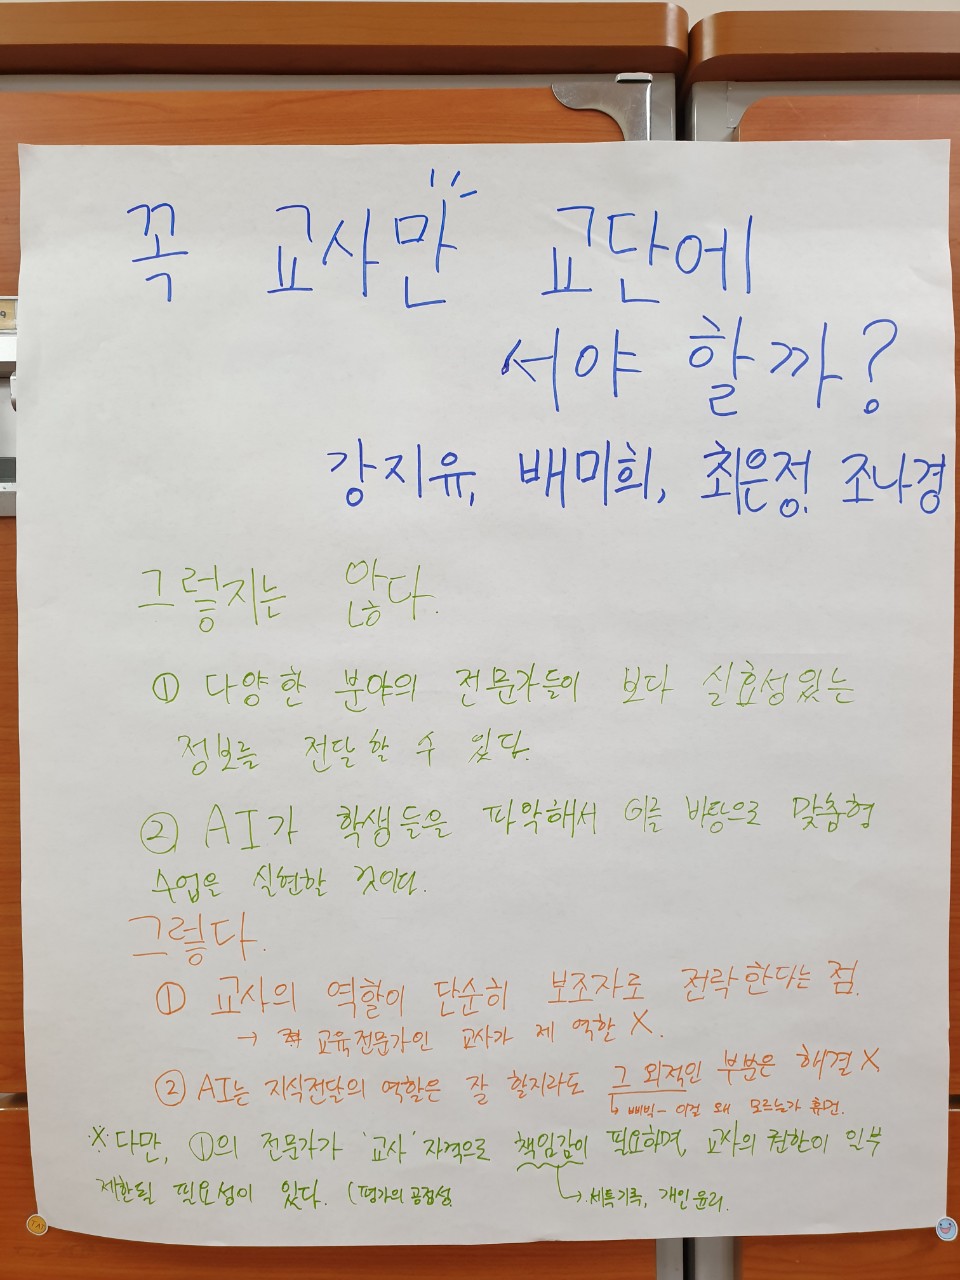 꼭 교사만 교단에
서야 할까?
강지유, 배미희, 최은정, 조나경
그렇지는 않다.
① 다양한 분야의 전문가들이 보다 실효성있는
정보를 전달할 수 있다.
② AI가 학생들을 파악해서 이를 바탕으로 맞춤형
수업을 실현할 것이다.
그렇다.
① 교사의 역할이 단순히 보조자로 전락한다는 점.
→ 교육전문가인 교사가 제 역할 X.
② AI는 지식전달의 역할은 잘 할지라도 그 외적인 부분은 해결 X
↳ 삐빅- 이걸 왜 모르는가 휴먼.
※ 다만, ①의 전문가가 '교사' 자격으로 책임감이 필요하며, 교사의 권한이 일부
제한될 필요성이 있다. (평가의 공정성
↳ 세특기록, 개인 윤리.